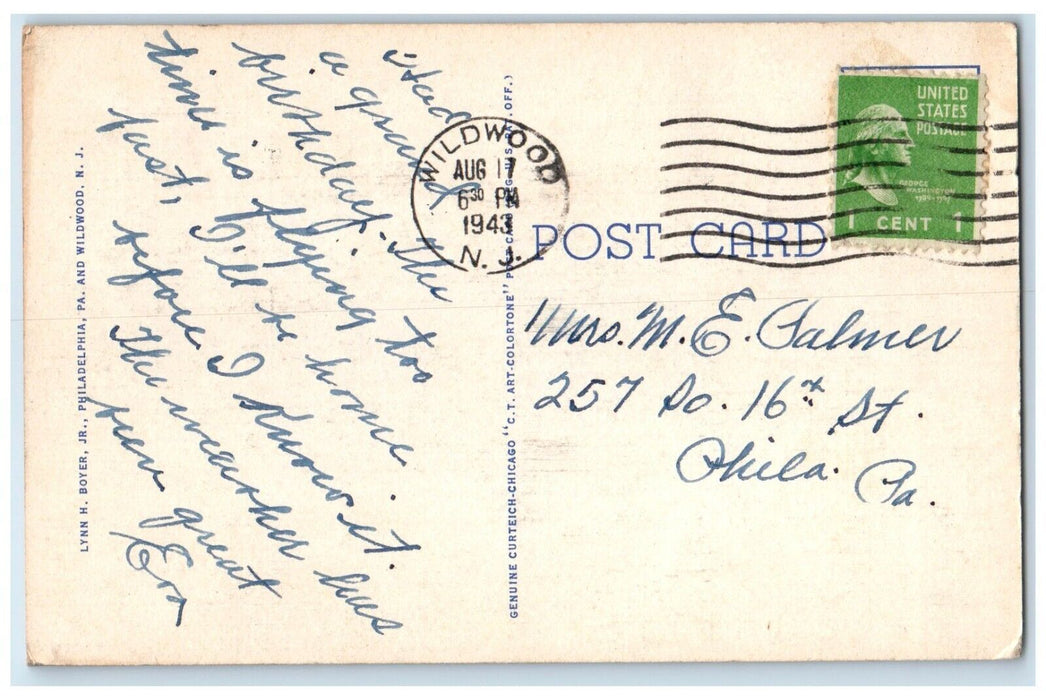 Had
a grand
birthday. The
time is flying too
fast, I'll be home
before I know it.
The weather has
been great
Eva
LYNN H. BOYER, JR., PHILADELPHIA, PA. AND WILDWOOD, N. J.
GENUINE CURTEICH-CHICAGO "C.T. ART-COLORTONE" POST CARD (REG. U.S. PAT. OFF.)
WILDWOOD
AUG 17
6 30 PM
1943
N. J.
POST CARD
UNITED
STATES
POSTAGE
GEORGE
WASHINGTON
1789-1797
1 CENT 1
Mrs. M. E. Palmer
257 So. 16th St.
Phila. Pa.